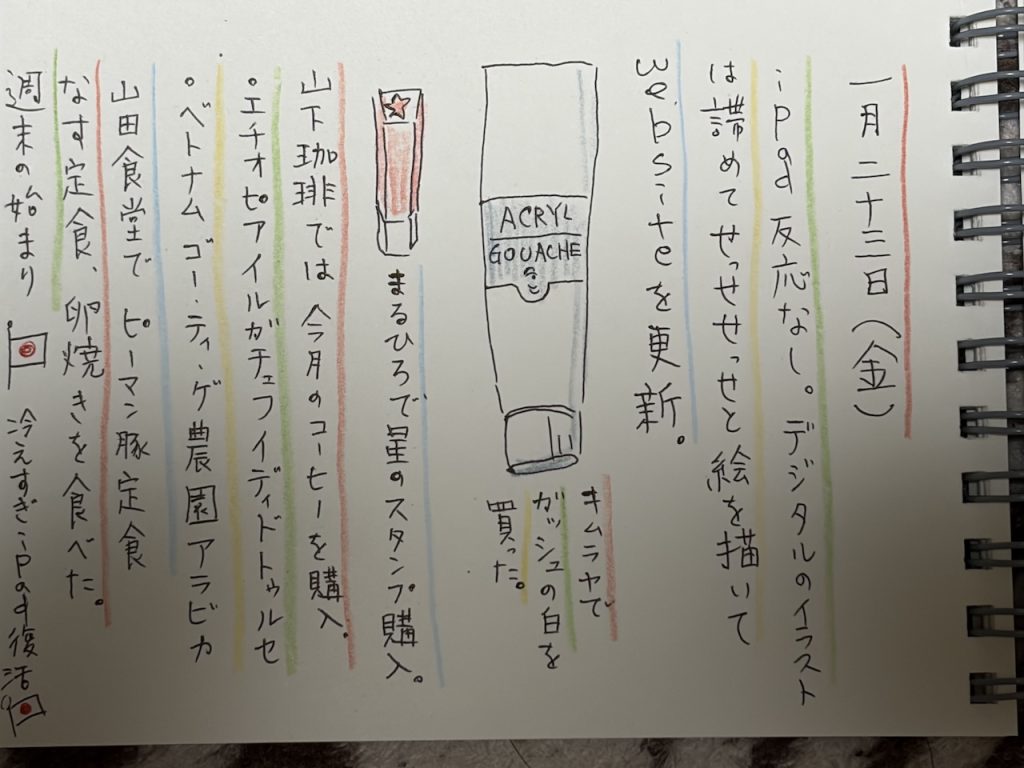 一月二十三日(金)
ipad反応なし。デジタルのイラスト
は諦めてせっせせっせと絵を描いて
Webisiteを更新。
ACRYL
GOUACHE
キムラヤで
ガッシュの白を
買った。
まるひろで星のスタンプ購入。
山下珈琲では今月のコーヒーを購入。
・エチオピアイルガチェフイディドトゥルセ
・ベトナムゴー・ティ・ゲ農園アラビカ
山田食堂でピーマン豚定食
なす定食、卵焼きを食べた。
週末の始まり
冷えすぎipad復活